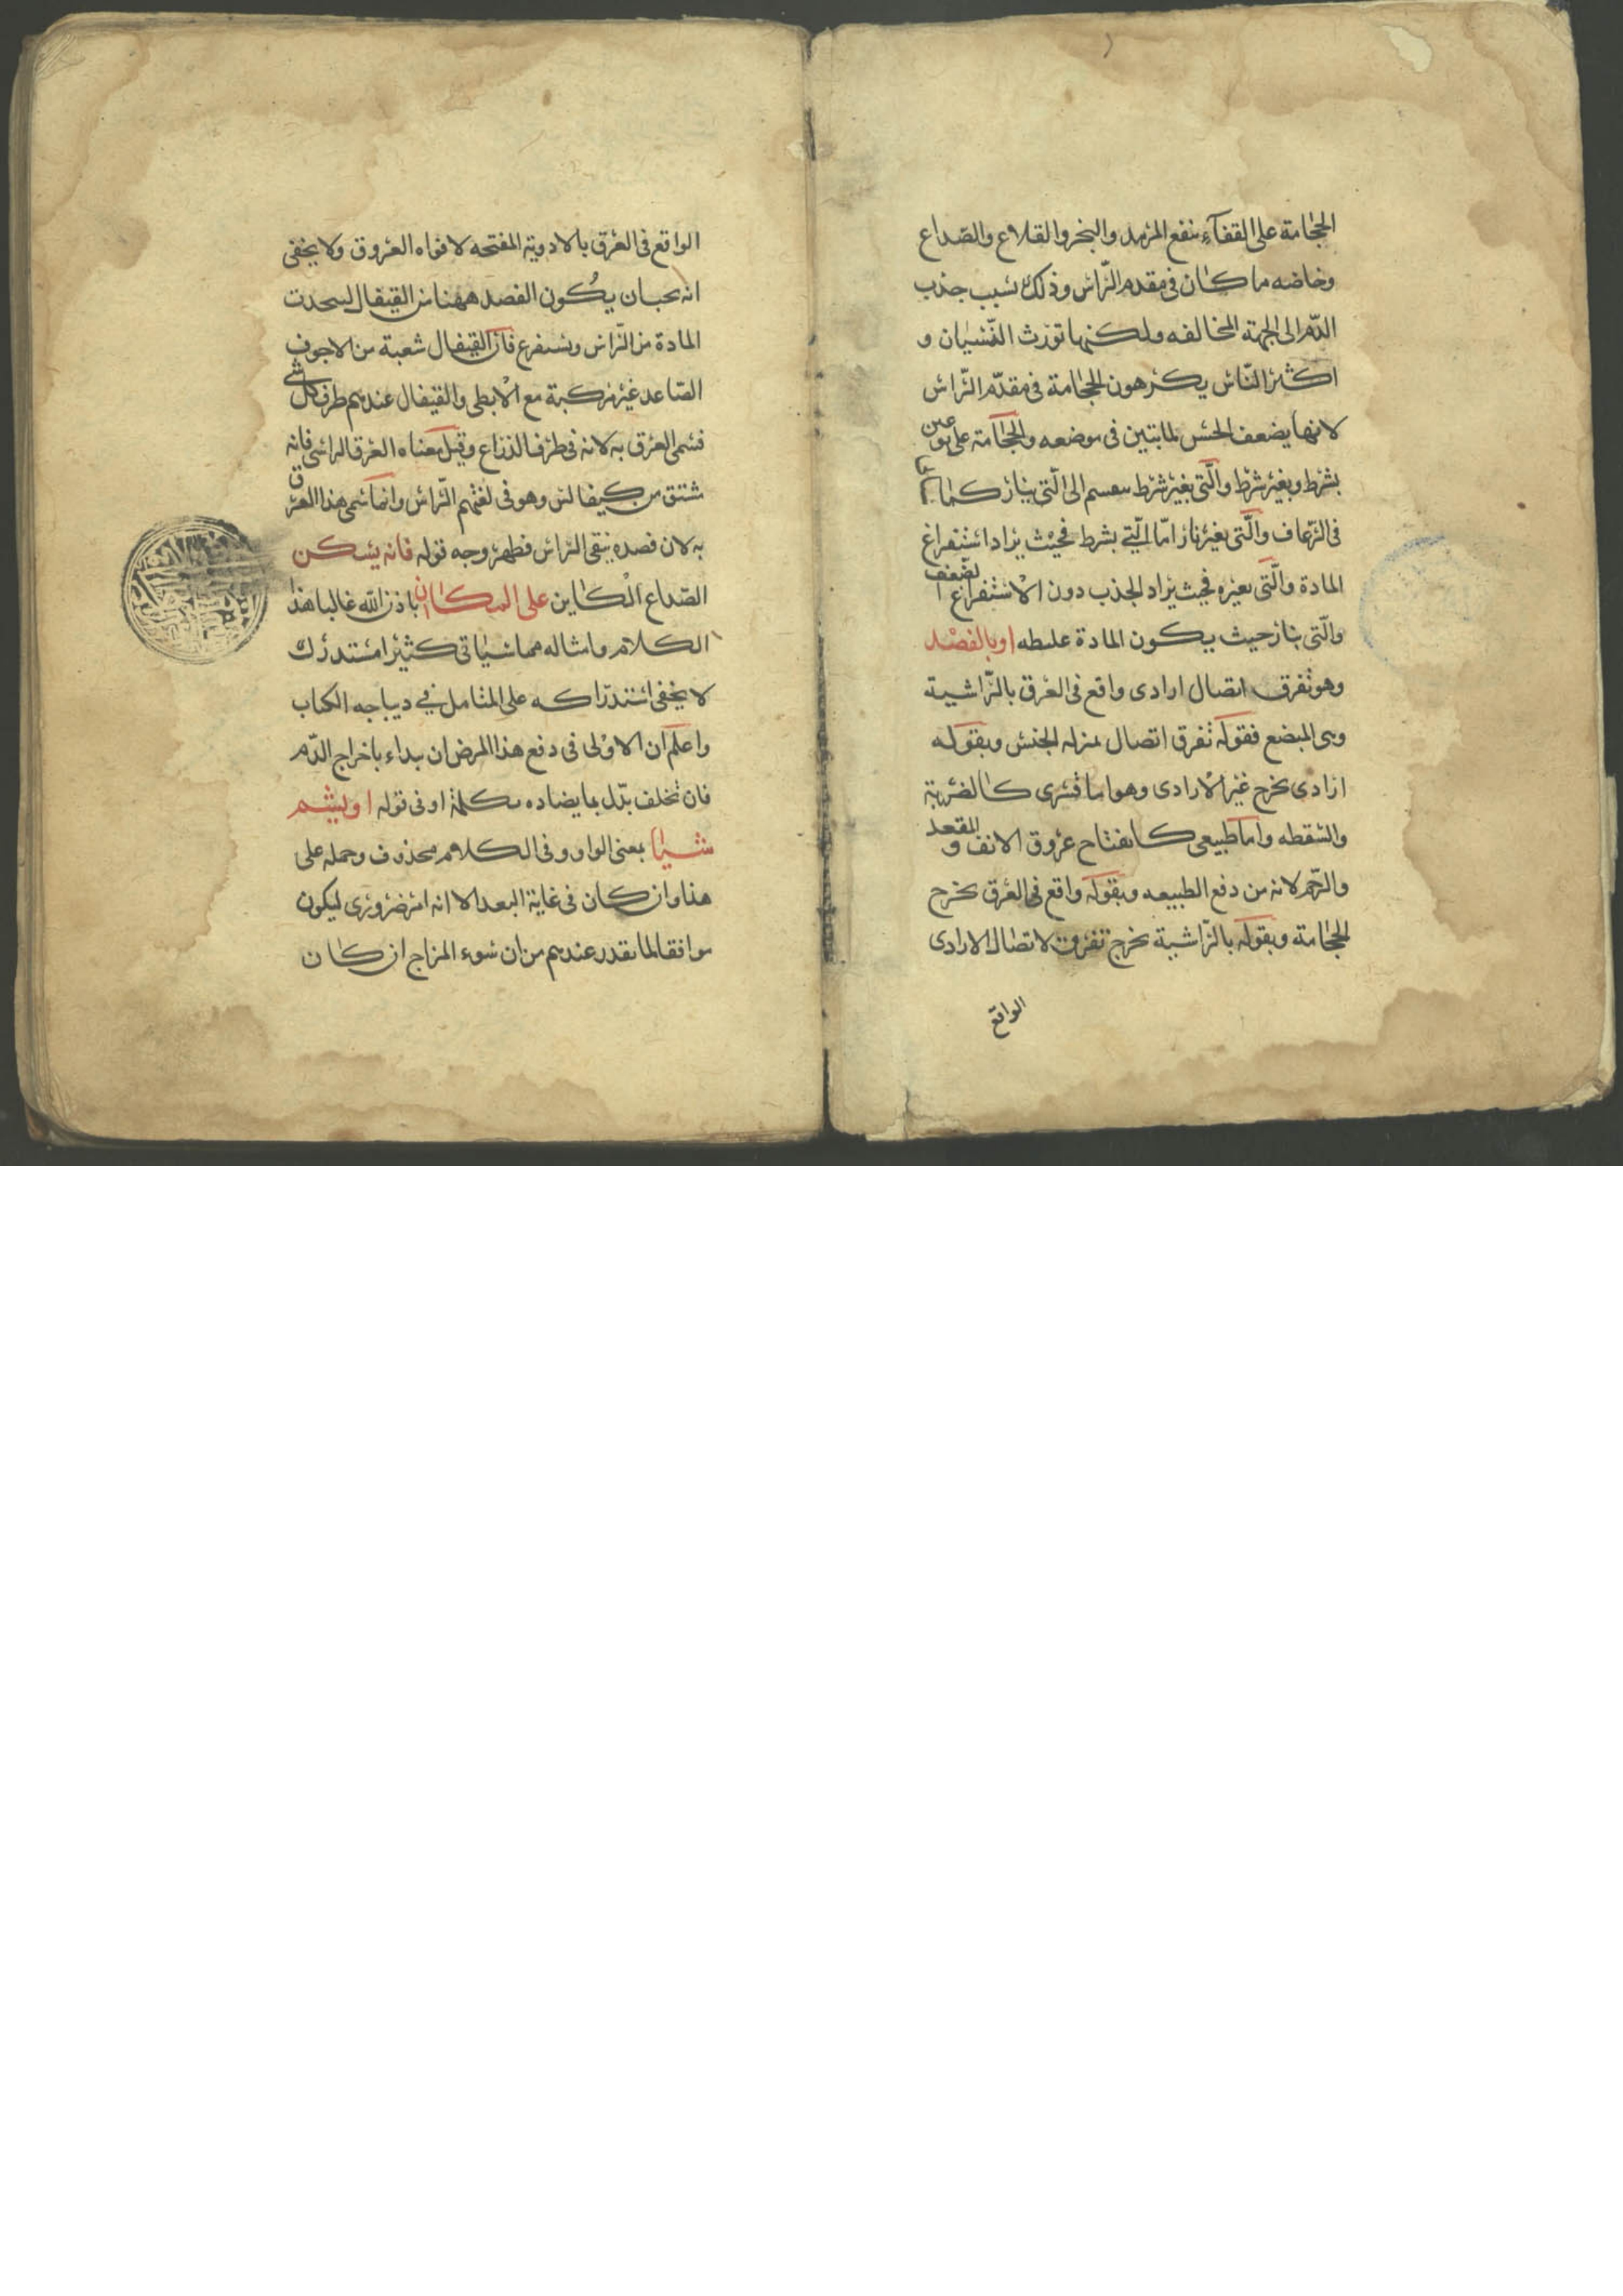 الحجامة على القفاء ينفع الرمد والبخر والقلاع والصداع
وخاصه ما كان فى مقدم الراس وذلك بسبب جذب
الدم الى الجهة المخالفه ولكنها تورث النسيان و
اكثر الناس يكرهون الحجامة فى مقدم الراس
لانها يضعف الحس لما يتبين فى موضعه والحجامة على نوعين
بشرط وبغير شرط والتى بغير شرط ينقسم الى التى بنار كما
فى الرعاف والتى بغير نار اما التى بشرط فحيث يراد استفراغ
المادة والتى بغيره فحيث يراد الجذب دون الاستفراغ لضعف
والتى بنار حيث يكون المادة غليظه او بالفصد
وهو تفرق اتصال ارادى واقع فى العرق بالراشية
وهى المبضع فقوله تفرق اتصال بمنزله الجنس وبقوله
ارادى يخرج غير الارادى وهو اما قسرى كالضربة
والسقطه واما طبيعى كانفتاح عروق الانف والمقعد
والرحم لانه من دفع الطبيعه وبقوله واقع فى العرق يخرج
الحجامة وبقوله بالراشية يخرج تفرق الاتصال الارادى
الواقع
الواقع فى العرق بالادوية المفتحه لافواه العروق ولا يخفى
انه يجب ان يكون الفصد ههنا من القيفال لينجذب
المادة من الراس ويستفرغ فان القيفال شعبة من الاجوف
الصاعد غير مركبة مع الابطى والقيفال عندهم طرف كل شى
فسمى العرق به لانه فى طرف الذراع وقيل معناه العرق الراسى فانه
مشتق من كيفالس وهو فى لغتهم الراس وانما سمى هذا العرق
به لان فصده ينقى الراس فظهر وجه قوله فانه يسكن
الصداع الكاين على المكان باذن الله غالبا هذا
الكلام وامثاله مما سياتى كثيرا مستدرك
لا يخفى استدراكه على المتامل فى ديباجه الكتاب
واعلم ان الاولى فى دفع هذا المرض ان بداء باخراج الدم
فان تخلف بدل بما يضاده بكلمة او فى قوله او يشم
شيا بمعنى الواو وفى الكلام محذوف وحمله على
هذا وان كان فى غاية البعد الا انه امر ضرورى ليكون
موافقا لما تقرر عندهم من ان سوء المزاج ان كان